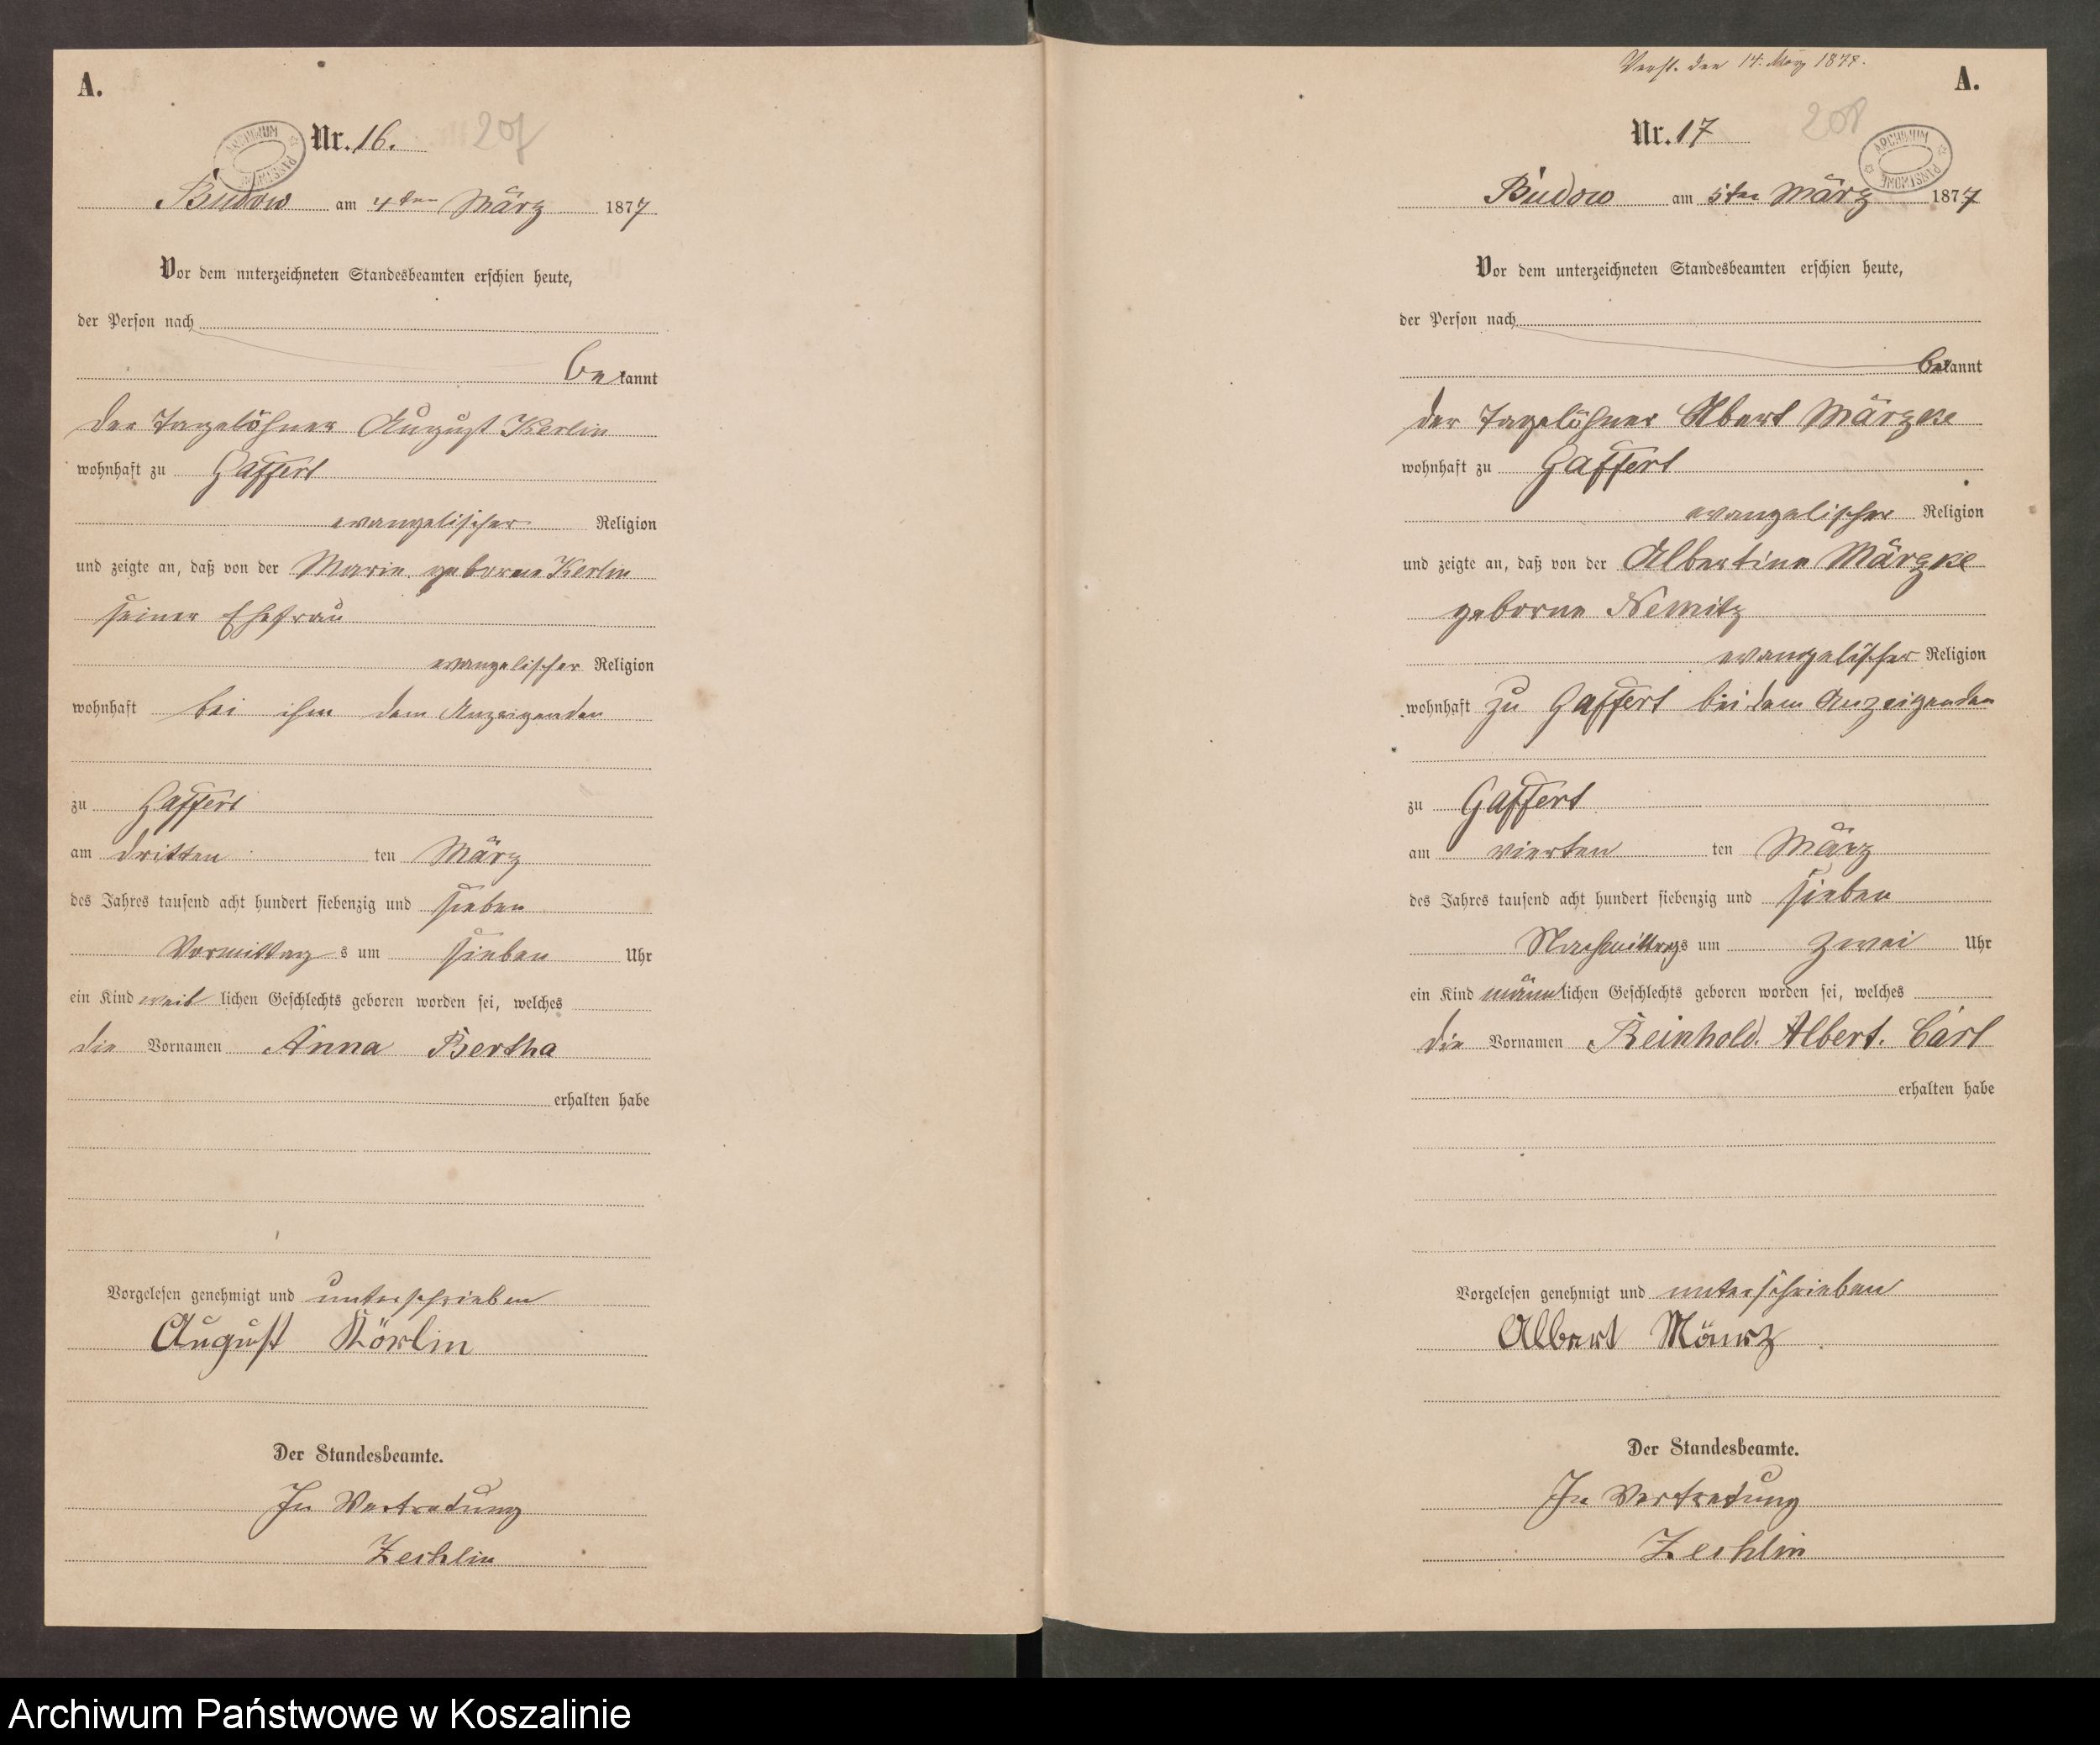 A.
Nr. 16.
207
ARCHIWUM PAŃSTWOWE
Budow am 4ten März 1877
Vor dem unterzeichneten Standesbeamten erschien heute,
der Person nach
bekannt
der Tagelöhner August Kerlin
wohnhaft zu Gaffert
evangelischer Religion
und zeigte an, daß von der Marie geborene Kerlin
seiner Ehefrau
evangelischer Religion
wohnhaft bei ihm dem Anzeigenden
zu Gaffert
am dritten ten März
des Jahres tausend acht hundert siebenzig und sieben
Vormittag s um sieben Uhr
ein Kind weib lichen Geschlechts geboren worden sei, welches
die Vornamen Anna Bertha
erhalten habe
Vorgelesen genehmigt und unterschrieben
August Körlin
Der Standesbeamte.
In Vertretung
Zechlin
Verst. den 14. März 1878.
A.
Nr. 17
208
ARCHIWUM PAŃSTWOWE
Budow am 5ten März 1877
Vor dem unterzeichneten Standesbeamten erschien heute,
der Person nach
bekannt
der Tagelöhner Albert Märzke
wohnhaft zu Gaffert
evangelischer Religion
und zeigte an, daß von der Albertine Märzke
geborne Nemitz
evangelischer Religion
wohnhaft zu Gaffert bei dem Anzeigenden
zu Gaffert
am vierten ten März
des Jahres tausend acht hundert siebenzig und sieben
Nachmittags um zwei Uhr
ein Kind männlichen Geschlechts geboren worden sei, welches
die Vornamen Reinhold. Albert. Carl
erhalten habe
Vorgelesen genehmigt und unterschrieben
Albert März
Der Standesbeamte.
In Vertretung
Zechlin
Archiwum Państwowe w Koszalinie